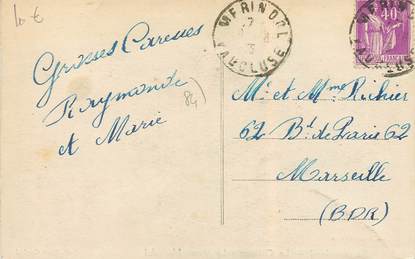 10 €
MERINDOL
VAUCLUSE
40
Grosses Caresses
Raymonde
et Marie
84)
Mr et Mme Richier
62 Bd de Paris 62
Marseille
(BDR)